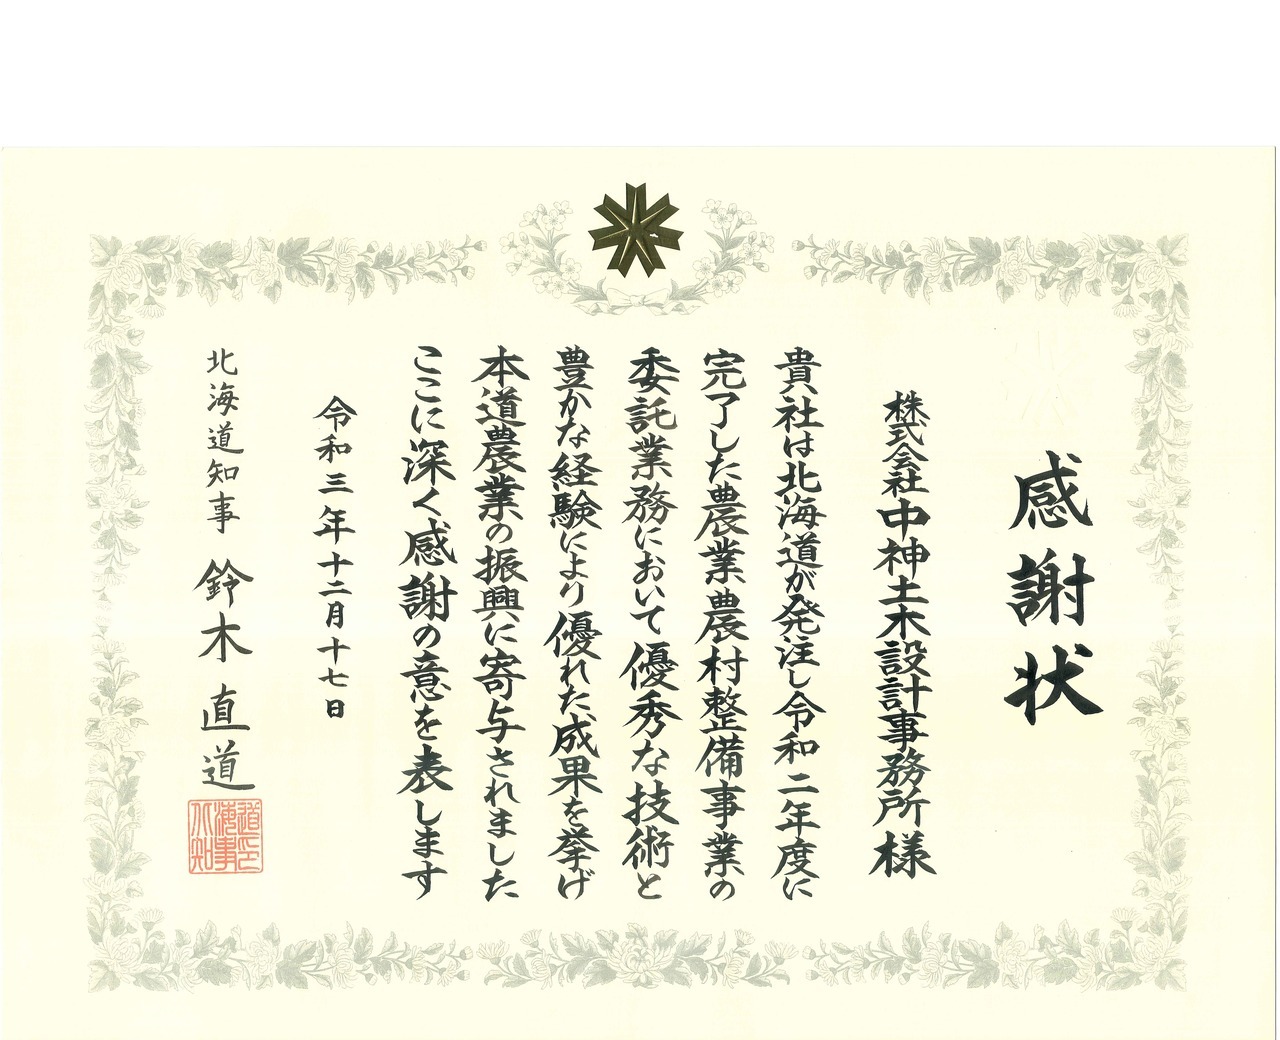 感謝状
株式会社中神土木設計事務所様
貴社は北海道が発注し令和二年度に
完了した農業農村整備事業の
委託業務において優秀な技術と
豊かな経験により優れた成果を挙げ
本道農業の振興に寄与されました
ここに深く感謝の意を表します
令和三年十二月十七日
北海道知事 鈴木直道